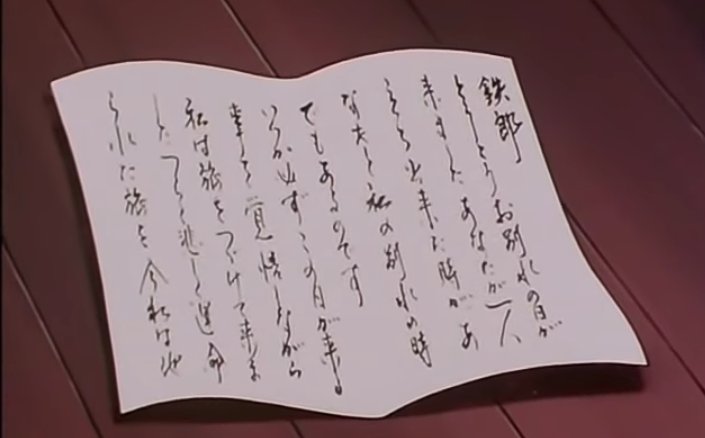 鉄郎
とうとうお別れの日が
来ました あなたが一人
出来た時が あ
なたと私の別れの時
でもあるのです
いつか必ずこの日が来る
事を覚悟しながら
私は旅をつづけて来ま
した つらく悲しい運命
られた旅を 今私は